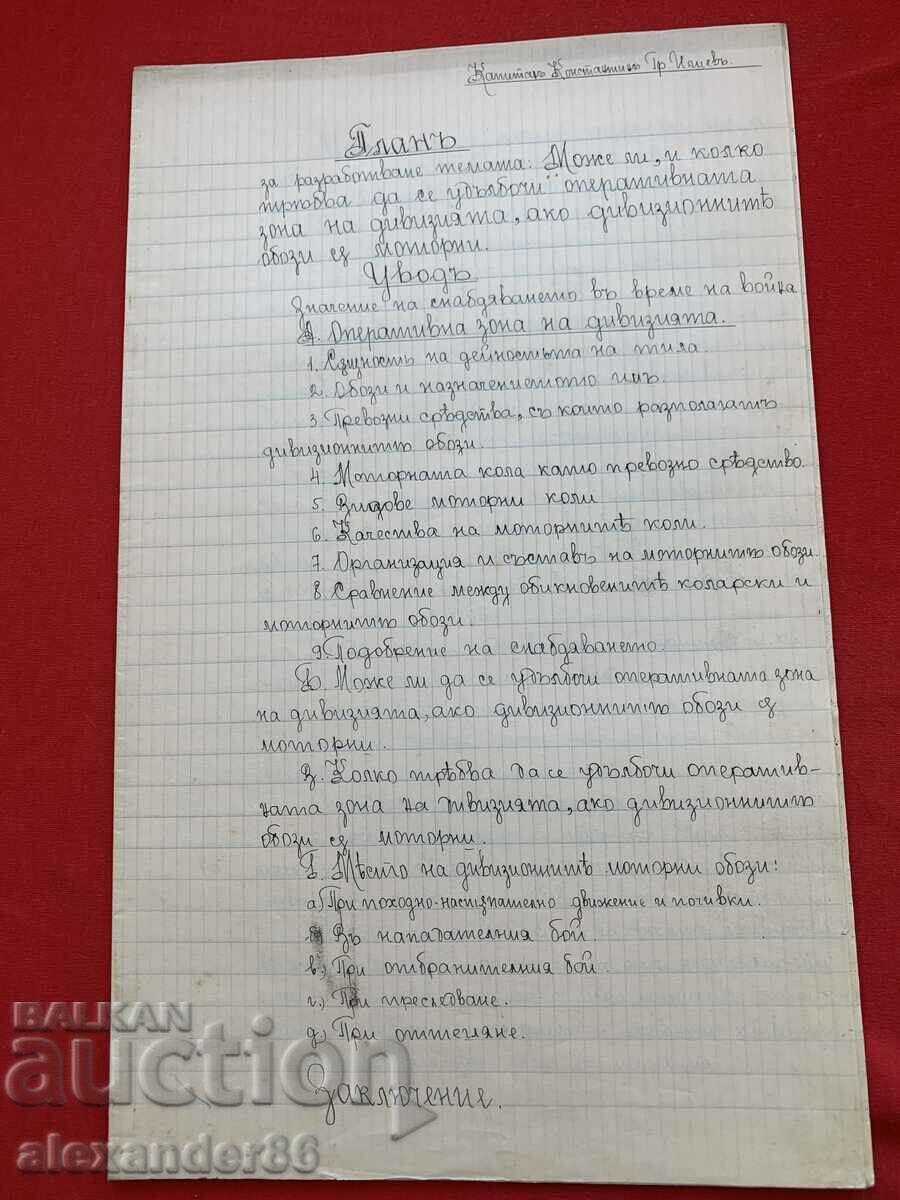 Капитанъ Константинъ Гр. Илиевъ.
Планъ
за разработване темата: Може ли, и колко
трѣбва да се удълбочи оперативната
зона на дивизията, ако дивизионнитѣ
обози сѫ моторни.
Уводъ
Значение на снабдяването въ време на война
Оперативна зона на дивизията.
1. Сѫщность на дейностьта на тила.
2. Обози и назначението имъ.
3. Превозни срѣдства, съ които разполагатъ
дивизионнитѣ обози.
4. Моторната кола като превозно срѣдство.
5. Видове моторни коли
6. Качества на моторнитѣ коли.
7. Организация и съставъ на моторнитѣ обози.
8. Сравнение между обикновенитѣ коларски и
моторнитѣ обози.
9. Подобрение на снабдяването.
Може ли да се удълбочи оперативната зона
на дивизията, ако дивизионнитѣ обози сѫ
моторни.
В. Колко трѣбва да се удълбочи оператив-
ната зона на дивизията, ако дивизионнитѣ
обози сѫ моторни.
Г. Мѣсто на дивизионнитѣ моторни обози:
а) При походно-настѫпателно движение и почивки.
Въ нападателния бой
в) При отбранителния бой.
г) При преследване.
д) При оттегляне.
Заключение.
BALKAN
auction
alexander86